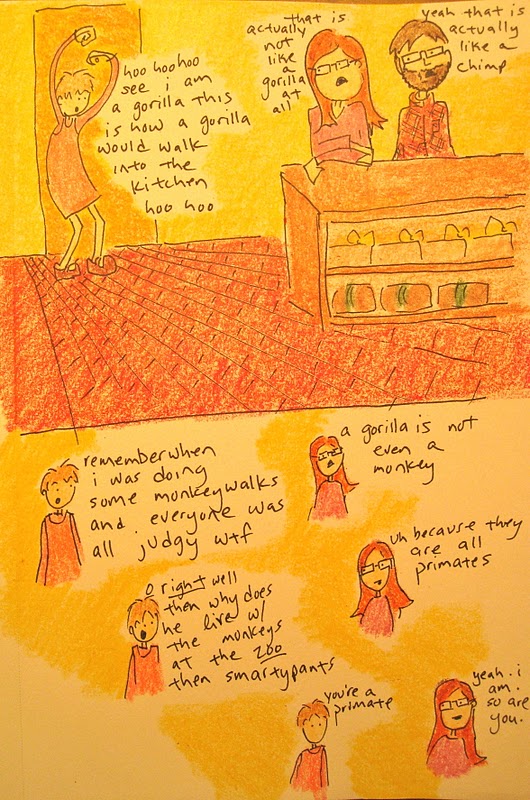 hoo hoo hoo
see i am
a gorilla this
is how a gorilla
would walk
into the
kitchen
hoo hoo
that is
actually
not
like
a
gorilla
at
all
yeah that is
actually
like a
chimp
remember when
i was doing
some monkeywalks
and everyone was
all judgy wtf
a gorilla is not
even a
monkey
o right well
then why does
he live w/
the monkeys
at the zoo
then smartypants
uh because they
are all
primates
you're a
primate
yeah. i
am.
so are
you.